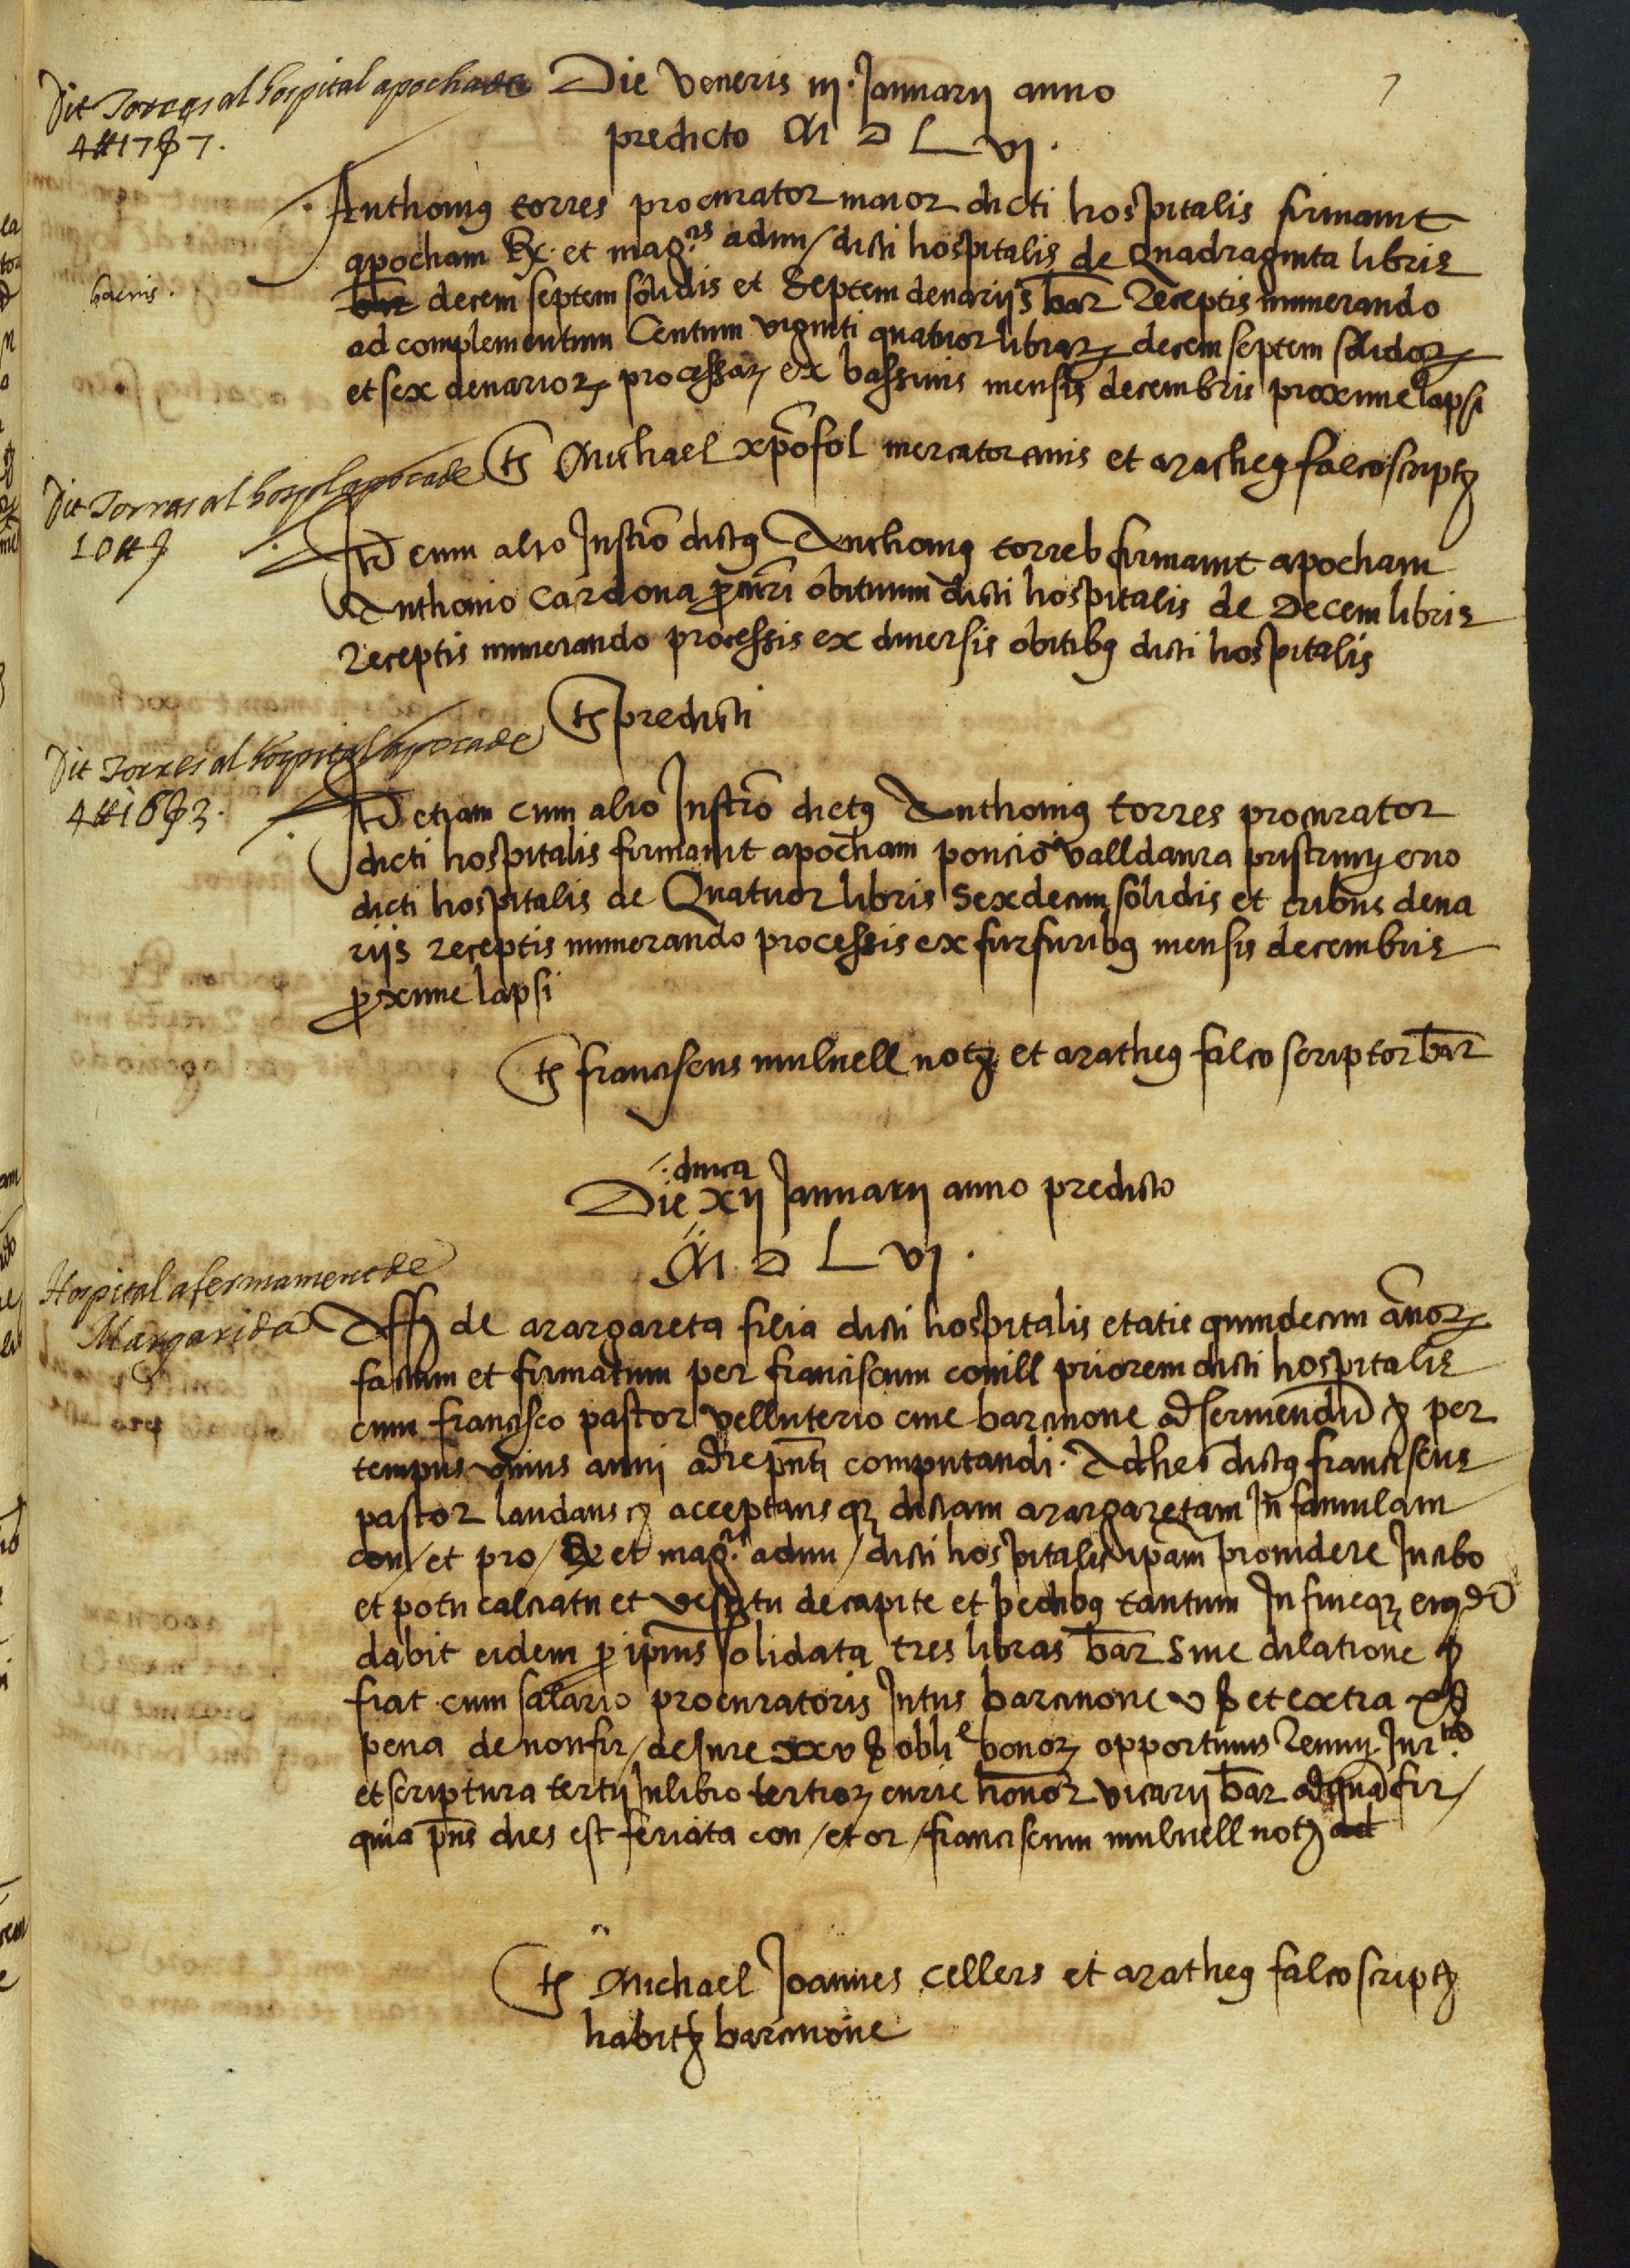 Dit Torres al hospital apocha de
4 ₶ 17 ß 7.
Die veneris iij. Januarij anno
predicto M D L vj.
Anthonius torres procurator maior dicti hospitalis firmavit
apocham Rx. et mag.cis admi/ dicti hospitalis de Quadraginta libris
bacins.
bar decem septem solidis et Septem denarijs bar receptis numerando
ad complementum Centum viginti quatuor librarum decem septem solidorum
et sex denariorum processarum ex bassinis mensis decembris proxime lapsi
ts Michael xpofol mercator civis et matheus falco scriptor
Dit Torres al hospital apoca de
10 ₶ ß
Itd cum alio Instro dictus Anthonius torres firmavit apocham
Anthonio Cardona procuri obituum dicti hospitalis de Decem libris
receptis numerando processis ex diversis obitibus dicti hospitalis
ts predicti
Dit Torres al hospital apoca de
4 ₶ 16 ß 3.
Itd etiam cum alio Instro dictus Anthonius torres procurator
dicti hospitalis firmavit apocham poncio valldaura
dicti hospitalis de Quatuor libris Sexdecim solidis et tribus dena
rijs receptis numerando processis ex furfuribus mensis decembris
proxime lapsi
ts franciscus mulnell not et matheus falco scriptor bar
dnica
Die xij Januarij anno predicto
M D L vj.
Hospital afermament de
Margarida
Aff de margareta filia dicti hospitalis etatis quindecim annorum
factum et firmatum per franciscum conill priorem dicti hospitalis
cum francisco pastor velluterio cive barcinone ad serviendum &c per
tempus unius anni adie pnti computandi. Adhec dictus franciscus
pastor laudans &c acceptansque dictam margaretam In famulam
con/ et pro/ Rx et mag.cis admi/ dicti hospitalis ipam providere In cibo
et potu calciatu et vestitu de capite et pedibus tantum In fineque
dabit eidem pro ipsius solidata tres libras bar sine dilatione &c
fiat cum salario procuratoris Intus barcinone v ß et extra x ß
pena de non fir/ de Jure xxv ß obli.e bonorum opportunis
et scriptura tertij In libro tertiorum curie honor vicarij bar ad quam fir/
quia pns dies est feriata con/ et or/ franciscum mulnell not ad
ts Michael Joannes cellers et matheus falco scriptor
habit barcinone